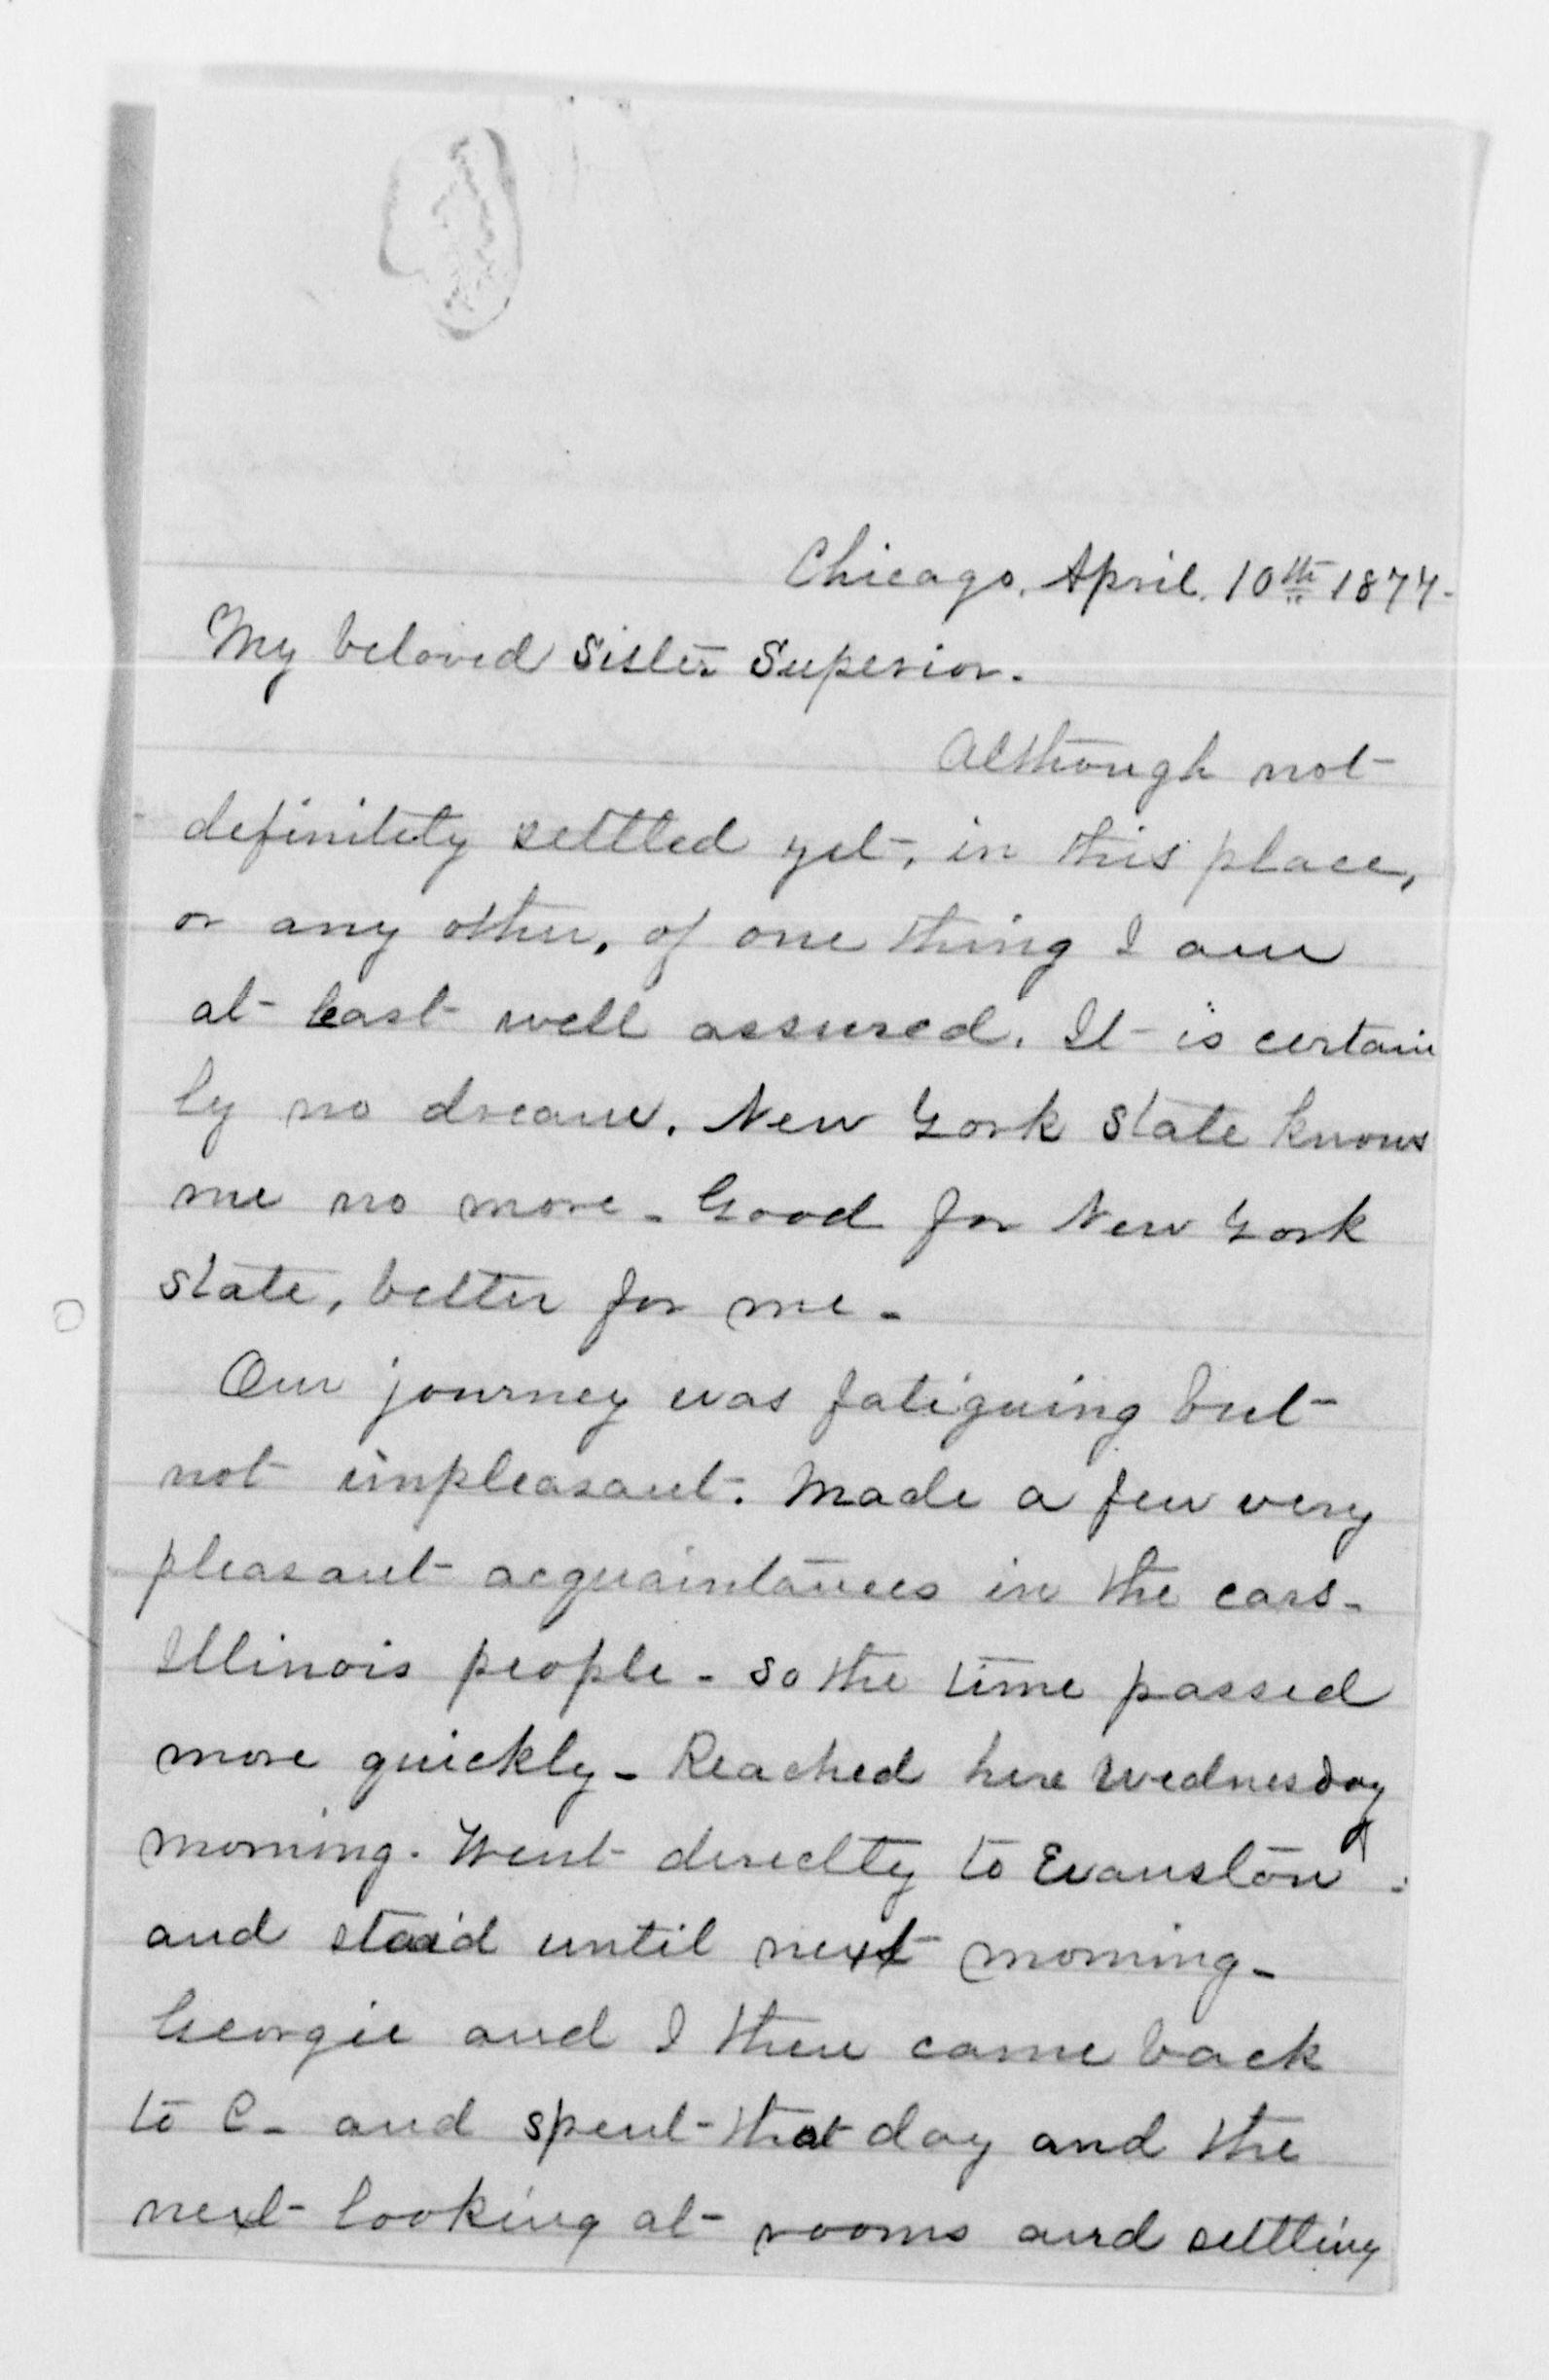 Chicago, April, 10th 1877-
My beloved Sister Superior.
Although not
definitely settled yet, in this place,
or any other, of one thing I am
at least well assured. It is certain
ly no dream. New York State knows
me no more - Good for New York
State, better for me -
Our journey was fatiguing but
not unpleasant. Made a few very
pleasant acquaintances in the cars -
Illinois people - so the time passed
more quickly - Reached here Wednesday
morning. Went directly to Evanston
and staid until next morning -
Georgie and I then came back
to C - and spent that day and the
next looking at rooms and settling